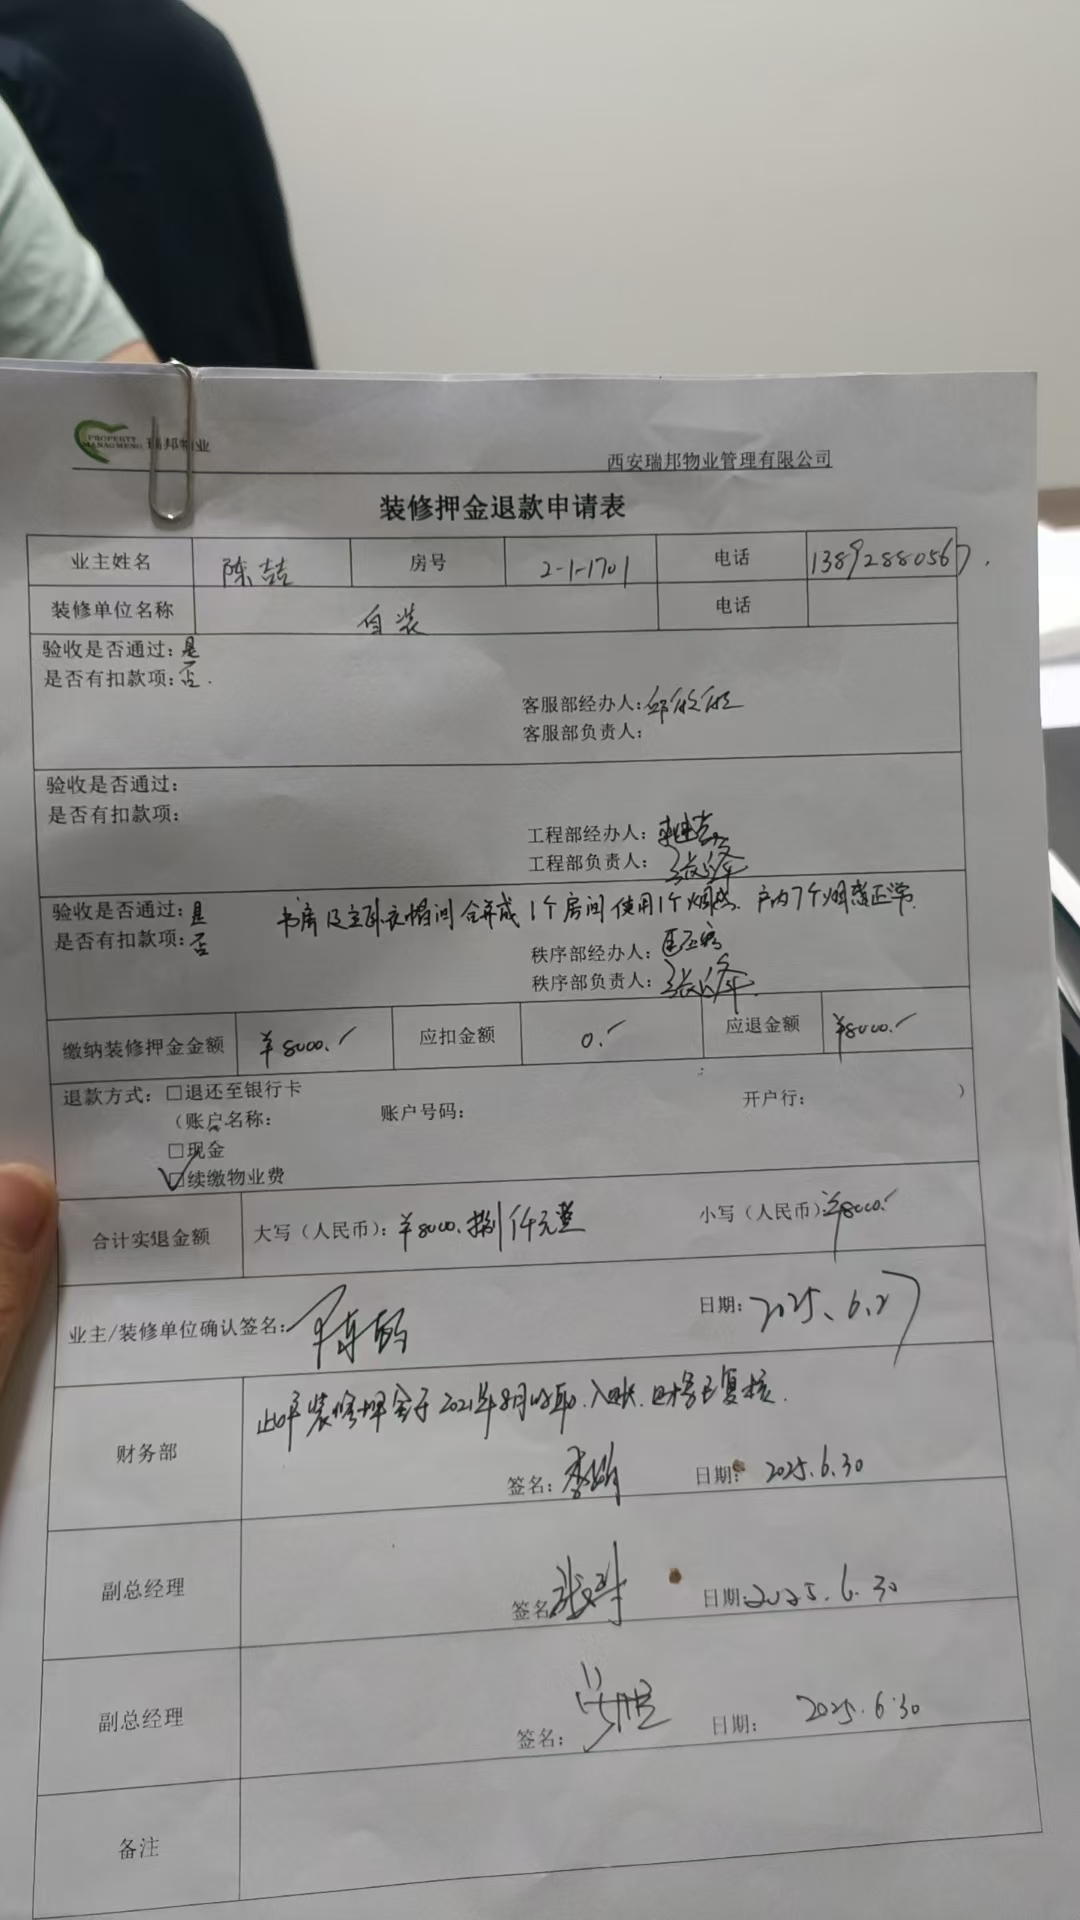 PROPERTY
MANAGMENG 瑞邦物业
西安瑞邦物业管理有限公司
装修押金退款申请表
业主姓名 陈喆 房号 2-1-1701 电话 13892880567.
装修单位名称 自装 电话
验收是否通过：是
是否有扣款项：否.
客服部经办人：邱欣欣
客服部负责人：
验收是否通过：
是否有扣款项：
工程部经办人：
工程部负责人：
验收是否通过：是 书房及主卧衣帽间合并成1个房间使用1个烟感. 户内7个烟感正常.
是否有扣款项：否
秩序部经办人：
秩序部负责人：
缴纳装修押金金额 ¥8000.- 应扣金额 0.- 应退金额 ¥8000.-
退款方式：□退还至银行卡
（账户名称： 账户号码： 开户行： ）
□现金
□续缴物业费
合计实退金额 大写（人民币）：¥8000.捌仟元整 小写（人民币）：¥8000.-
业主/装修单位确认签名： 日期：2025.6.27
财务部 此户装修押金于2021年8月收取.入账.财务已复核.
签名： 日期：2025.6.30
副总经理 签名 日期：2025.6.30
副总经理 签名： 日期： 2025.6.30
备注